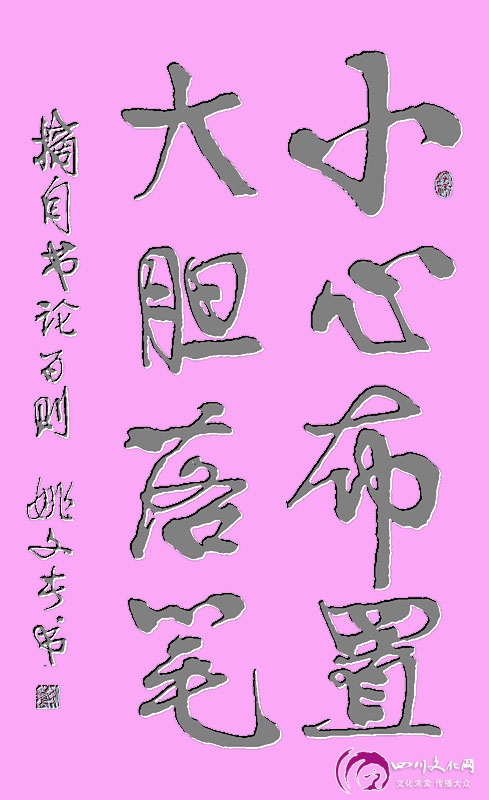 小心布置
大胆落笔
摘自书论百则 姚文奇书
四川文化网
文化求索 传播大众